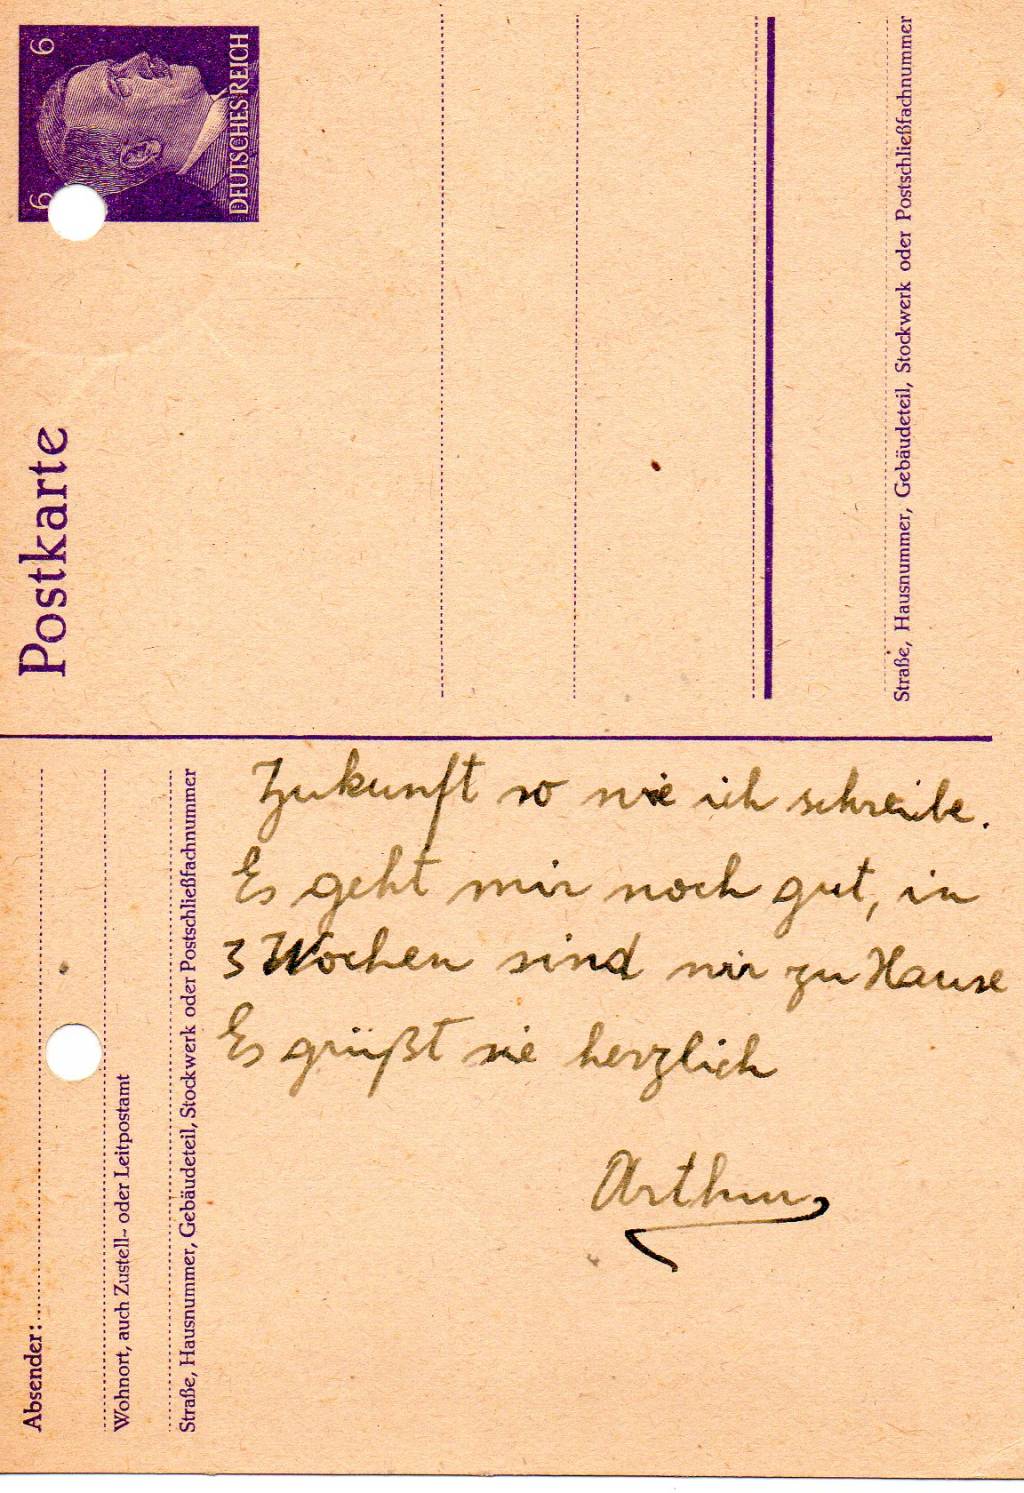 6 6
DEUTSCHES REICH
Postkarte
Straße, Hausnummer, Gebäudeteil, Stockwerk oder Postschließfachnummer
Absender:
Wohnort, auch Zustell- oder Leitpostamt
Straße, Hausnummer, Gebäudeteil, Stockwerk oder Postschließfachnummer
Zukunft so wie ich schreibe.
Es geht mir noch gut, in
3 Wochen sind wir zu Hause
Es grüßt sie herzlich
Arthur